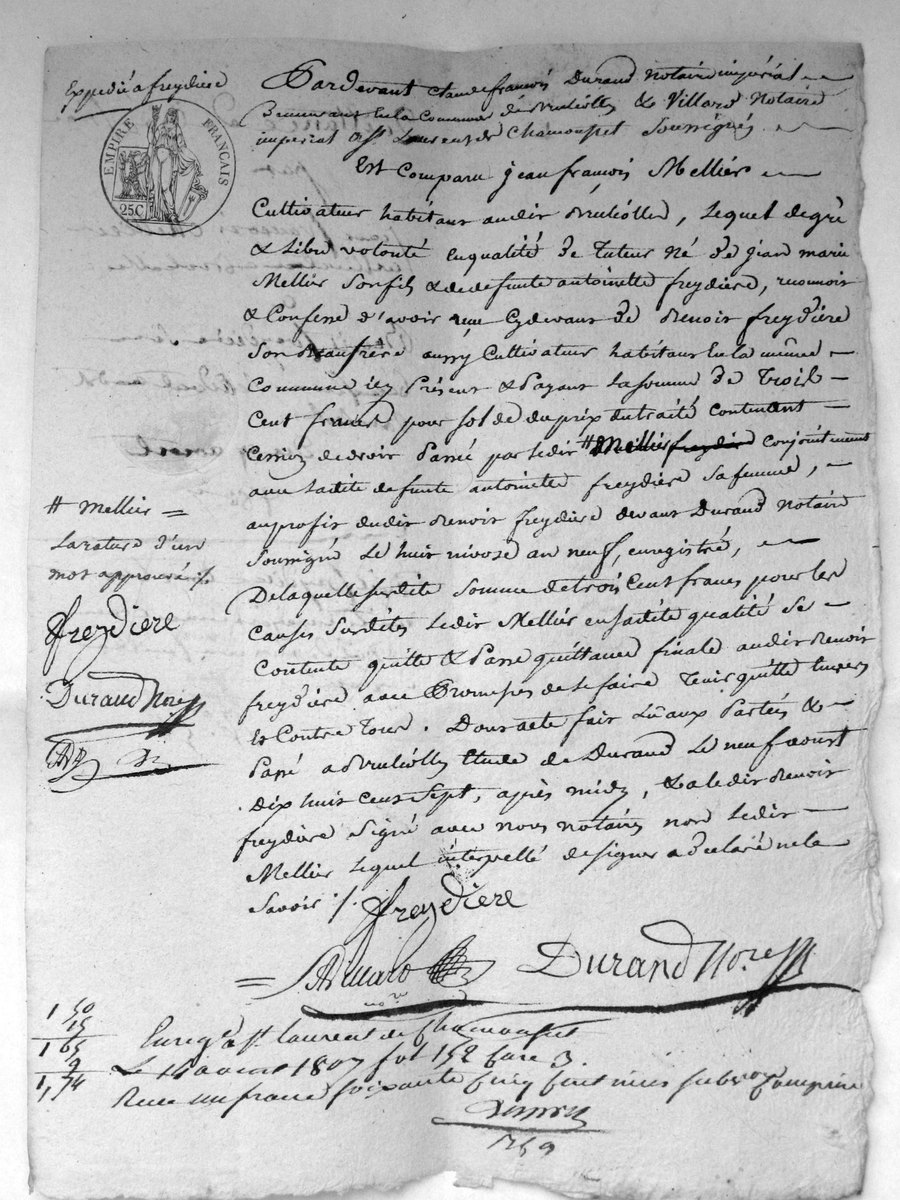 Expédié a freydiere
EMPIRE FRANÇAIS
25C
Pardevant Claude françois Durand notaire impérial
Demeurant En la Commune de Brulliolles & Villard Notaire
imperial a St Laurent de Chamousset Soussignés
Est Comparu jean françois Mellier
Cultivateur habitant audit Brulliolles, Lequel de gré
& Libre volonté en qualité de tuteur Né de jean marie
Mellier Son fils & de defunte antoinette freydiere, reconnoit
& Confesse d'avoir reçu Cydevant de Benoit freydière
Son Beaufrère aussy Cultivateur habitant En la même
Commune icy Présent & Payant La somme de Trois
Cent francs pour solde du prix du traité contenant
Cession de droit Passé par ledit # conjointement
avec Ladite defunte antoinette freydière sa femme,
au profit dudit Benoit freydière devant Durand Notaire
Soussigné Le huit nivose an neuf, enregistré,
De laquelle susdite Somme de trois Cent francs pour les
Causes Susdites Ledit Mellier en sadite qualité se
Contente quitte & Passe quittance finale audit Benoit
freydière avec Promesses de le faire Tenir quitte Envers
Et Contre Tous. Dont acte fait Lû aux Parties &
Passé a Brulliolles Etude de Durand Le neuf aoust
Dix huit Cent sept, après midy, & a ledit Benoit
freydiere Signé avec nous notaires non Ledit
Mellier Lequel interpellé de signer a Déclaré ne le
Savoir ./.
# Mellier =
La rature d'un
mot approuvée ./.
freydiere
Durand Nore
freydiere
Durand Nore
Enregé a St laurent de Chamousset
Le 14 aout 1807 fol 152 Case 3.
Reçu un franc soixante cinq centimes subvon Comprise
1 50
15
1 65
9
1,74